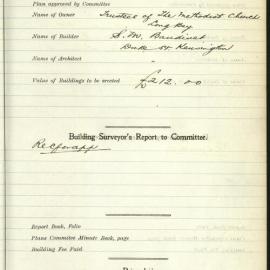 Plan approved by Committee
Name of Owner Trustees of The Methodist Church
Long Bay
Name of Builder S. M. Bardinet
Duke St Kensington
Name of Architect "
Value of Buildings to be erected £212.00
Building Surveyor's Report to Committee.
Rec for app
Report Book, Folio
Plans Committee Minute Book, page
Building Fee Paid